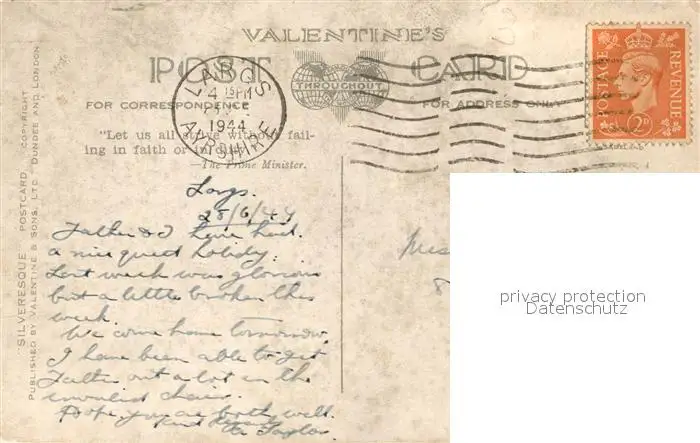 VALENTINE'S
POST CARD
THROUGHOUT
FOR CORRESPONDENCE
FOR ADDRESS ONLY
"Let us all strive without fail-
ing in faith or in duty"
—The Prime Minister.
LARGS
4 15 PM
1944
AYRSHIRE
POSTAGE REVENUE
2D
"SILVERESQUE" POSTCARD. COPYRIGHT
PUBLISHED BY VALENTINE & SONS, LTD. DUNDEE AND LONDON
Largs.
28/6/44
Father & I have had
a nice quiet holiday.
Last week was glorious
but a little broken this
week.
We come home tomorrow.
I have been able to get
Father out a lot in the
invalid chair.
Hope you are both well.
Kind regards
Taylor
8
privacy protection
Datenschutz